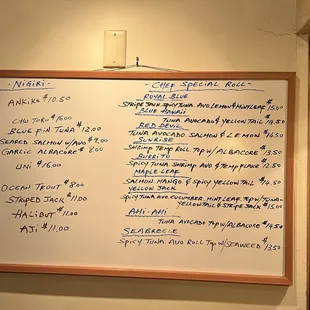 - NIGIRI -
ANKIKO $10.50
CHU TORO $16.00
BLUE FIN TUNA $12.00
SEARED SALMON W/AVO $9.00
GARLIC ALBACORE $8.00
UNI $16.00
OCEAN TROUT $8.00
STRIPED JACK $11.00
HALIBUT $11.00
AJI $11.00
- CHEF SPECIAL ROLL -
ROYAL BLUE
STRIPE JACK SPICY TUNA AVO LEMON & MINT LEAF $15.00
BLUE HAWAII
TUNA AVOCADO & YELLOW TAIL $14.50
RED DEVIL
TUNA AVOCADO SALMON & LEMON $14.50
SUNRISE
SHRIMP TEMP ROLL TOP W/ ALBACORE $13.50
BURRITO
SPICY TUNA SHRIMP AVO & TEMP FLAKE $12.50
MAPLE LEAF
SALMON MANGO & SPICY YELLOW TAIL $14.50
YELLOW JACK
SPICY TUNA AVO CUCUMBER MINT LEAF TOP W/ TUNA
YELLOWTAIL & STRIPE JACK $15.00
AHI-AHI
TUNA AVOCADO TOP W/ ALBACORE $14.50
SEABREEZE
SPICY TUNA AVO ROLL TOP W/ SEAWEED $13.50